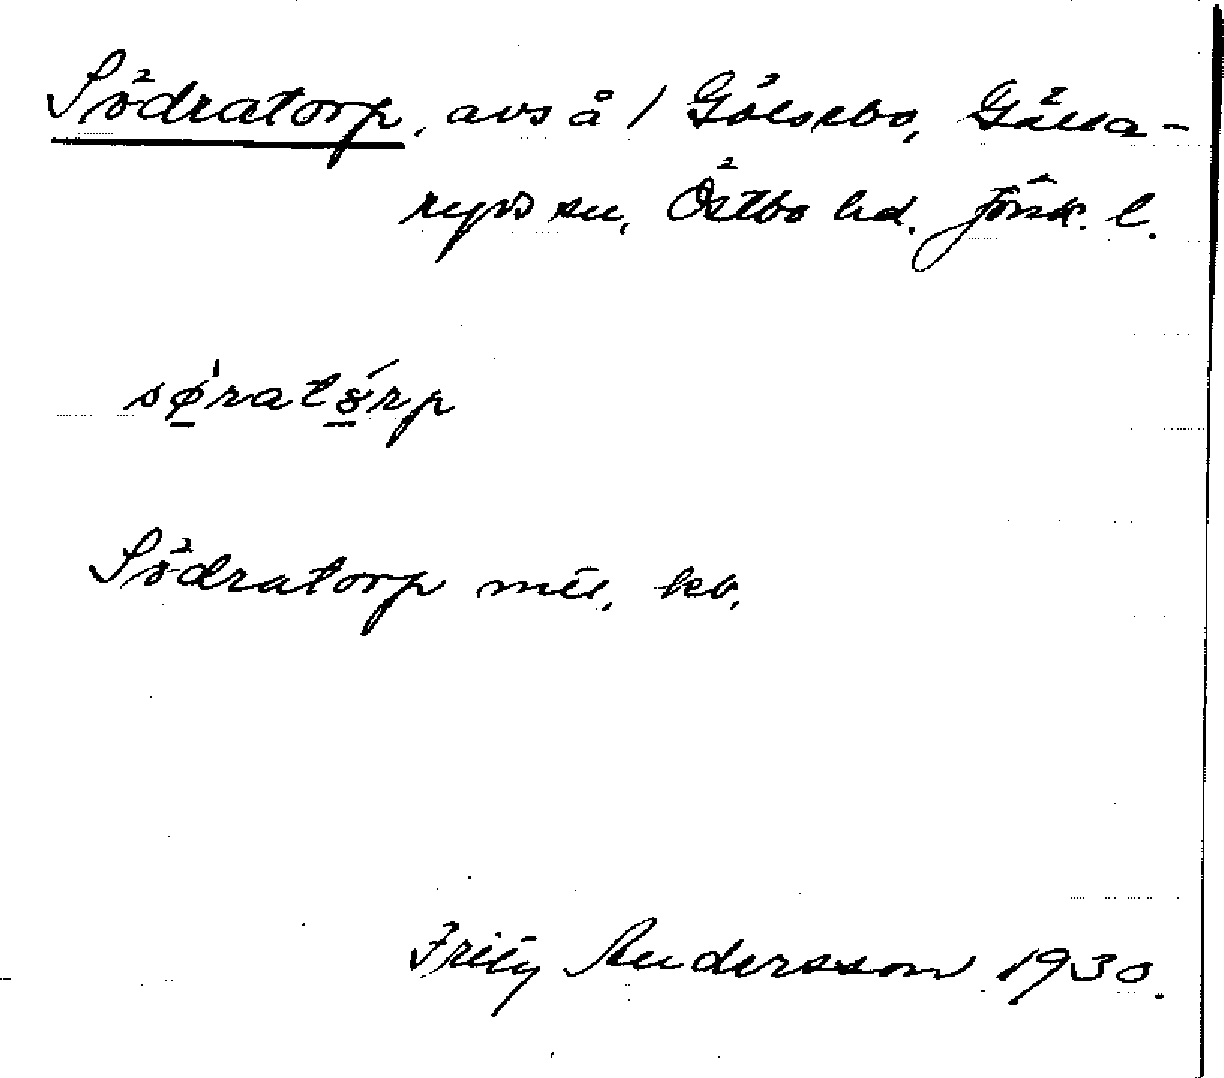 Södratorp, avs å / Gölsebo, Gälla-
ryds sn, Östbo hd. Jönk. l.
sø̠ˈratɤ̠́rp
Södratorp mtl. kb.
Fritz Andersson 1930.